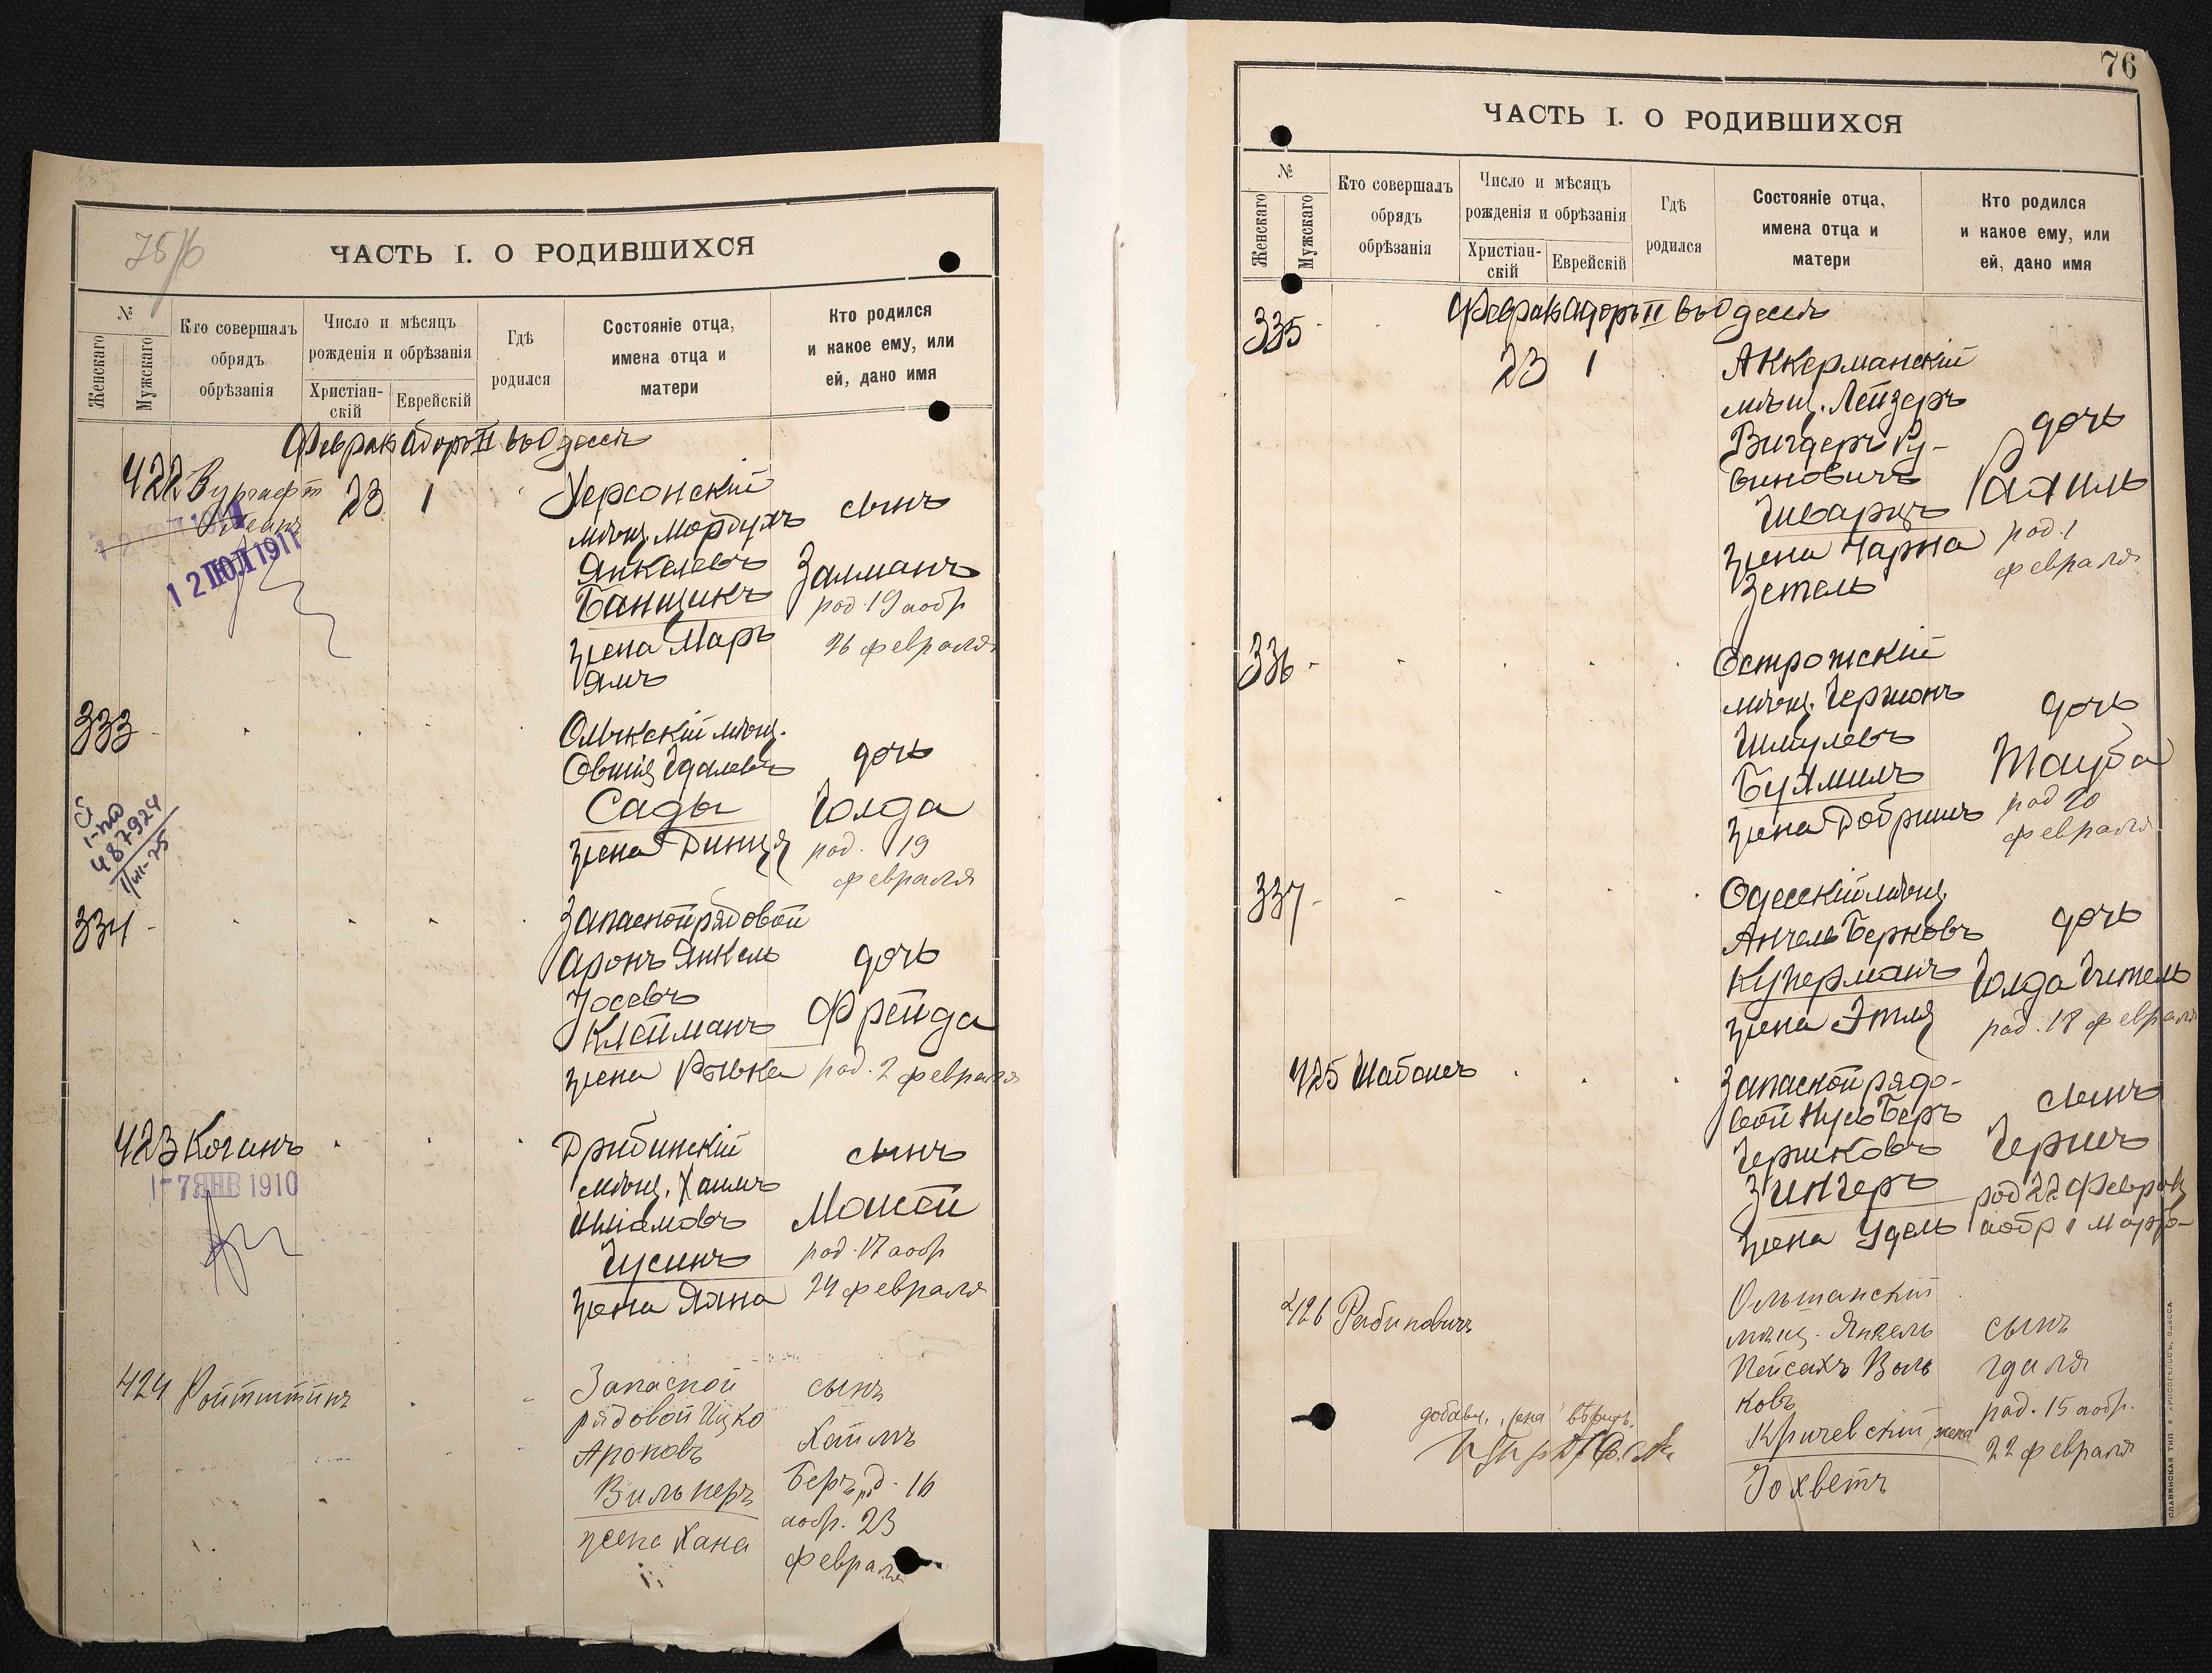 75/б
ЧАСТЬ I. О РОДИВШИХСЯ
№
Женскаго
Мужскаго
Кто совершалъ
обрядъ
обрѣзанія
Число и мѣсяцъ
рожденія и обрѣзанія
Христіан-
скій
Еврейскій
Гдѣ
родился
Состояніе отца,
имена отца и
матери
Кто родился
и какое ему, или
ей, дано имя
Феврал Адоръ II въ Одессѣ
422 Вургафт
23 1
12 ІЮЛ 1911
Херсонскій
мѣщ. Мордухъ
Янкелевъ
Банщикъ
жена Марь
ямъ
сынъ
Залманъ
род. 19 а обр
26 февраля
333
Олыкскій мѣщ.
Овшія Гдалевъ
Сады
жена Динця
дочь
Голда
род. 19
февраля
1-по
487924
334
Запасной рядовой
Аронъ Янкель
Іосевъ
Клейманъ
жена Рывка
дочь
Фрейда
род. 2 февраля
423 Коганъ
17 ЯНВ 1910
Дрибинскій
мѣщ. Хаимъ
Шліомовъ
Гусинъ
жена Хана
сынъ
Моисей
род. 17 а обр
24 февраля
424 Ройтштинъ
Запасной
рядовой Ицко
Ароновъ
Вильнеръ
жена Хана
сынъ
Хаимъ
Беръ род. 16
а обр. 23
февраля
76
ЧАСТЬ I. О РОДИВШИХСЯ
№
Женскаго
Мужскаго
Кто совершалъ
обрядъ
обрѣзанія
Число и мѣсяцъ
рожденія и обрѣзанія
Христіан-
скій
Еврейскій
Гдѣ
родился
Состояніе отца,
имена отца и
матери
Кто родился
и какое ему, или
ей, дано имя
Феврал Адоръ II въ Одессѣ
335
23 1
Аккерманскій
мѣщ. Лейзеръ
Вигдеръ Ру-
виновичъ
Шварцъ
жена Чарна
Зетель
дочь
Рахиль
род. 1
февраля
336
Острожскій
мѣщ. Гершонъ
Шмулевъ
Бухмилъ
жена Добришъ
дочь
Тауба
род 20
февраля
337
Одесскій мѣщ.
Анчель Берковъ
Куперманъ
жена Этля
дочь
Голда Гитель
род. 18 февраля
425 Шабашъ
Запасной рядо-
вой Нусь Беръ
Гершковъ
Зингеръ
жена Удель
сынъ
Гершъ
род 22 Февраля
а обр 1 Марта
426 Рабиновичъ
Ольшанскій
мѣщ. Янкель
Пейсахъ Воль
ковъ
Кричевскій, жена
Іохветъ
сынъ
Гдаля
род. 15 а обр.
22 февраля
добавл. "жена" вѣрить.
СЛАВЯНСКАЯ ТИП. Е. ХРИСОГЕЛОСЪ, ОДЕССА